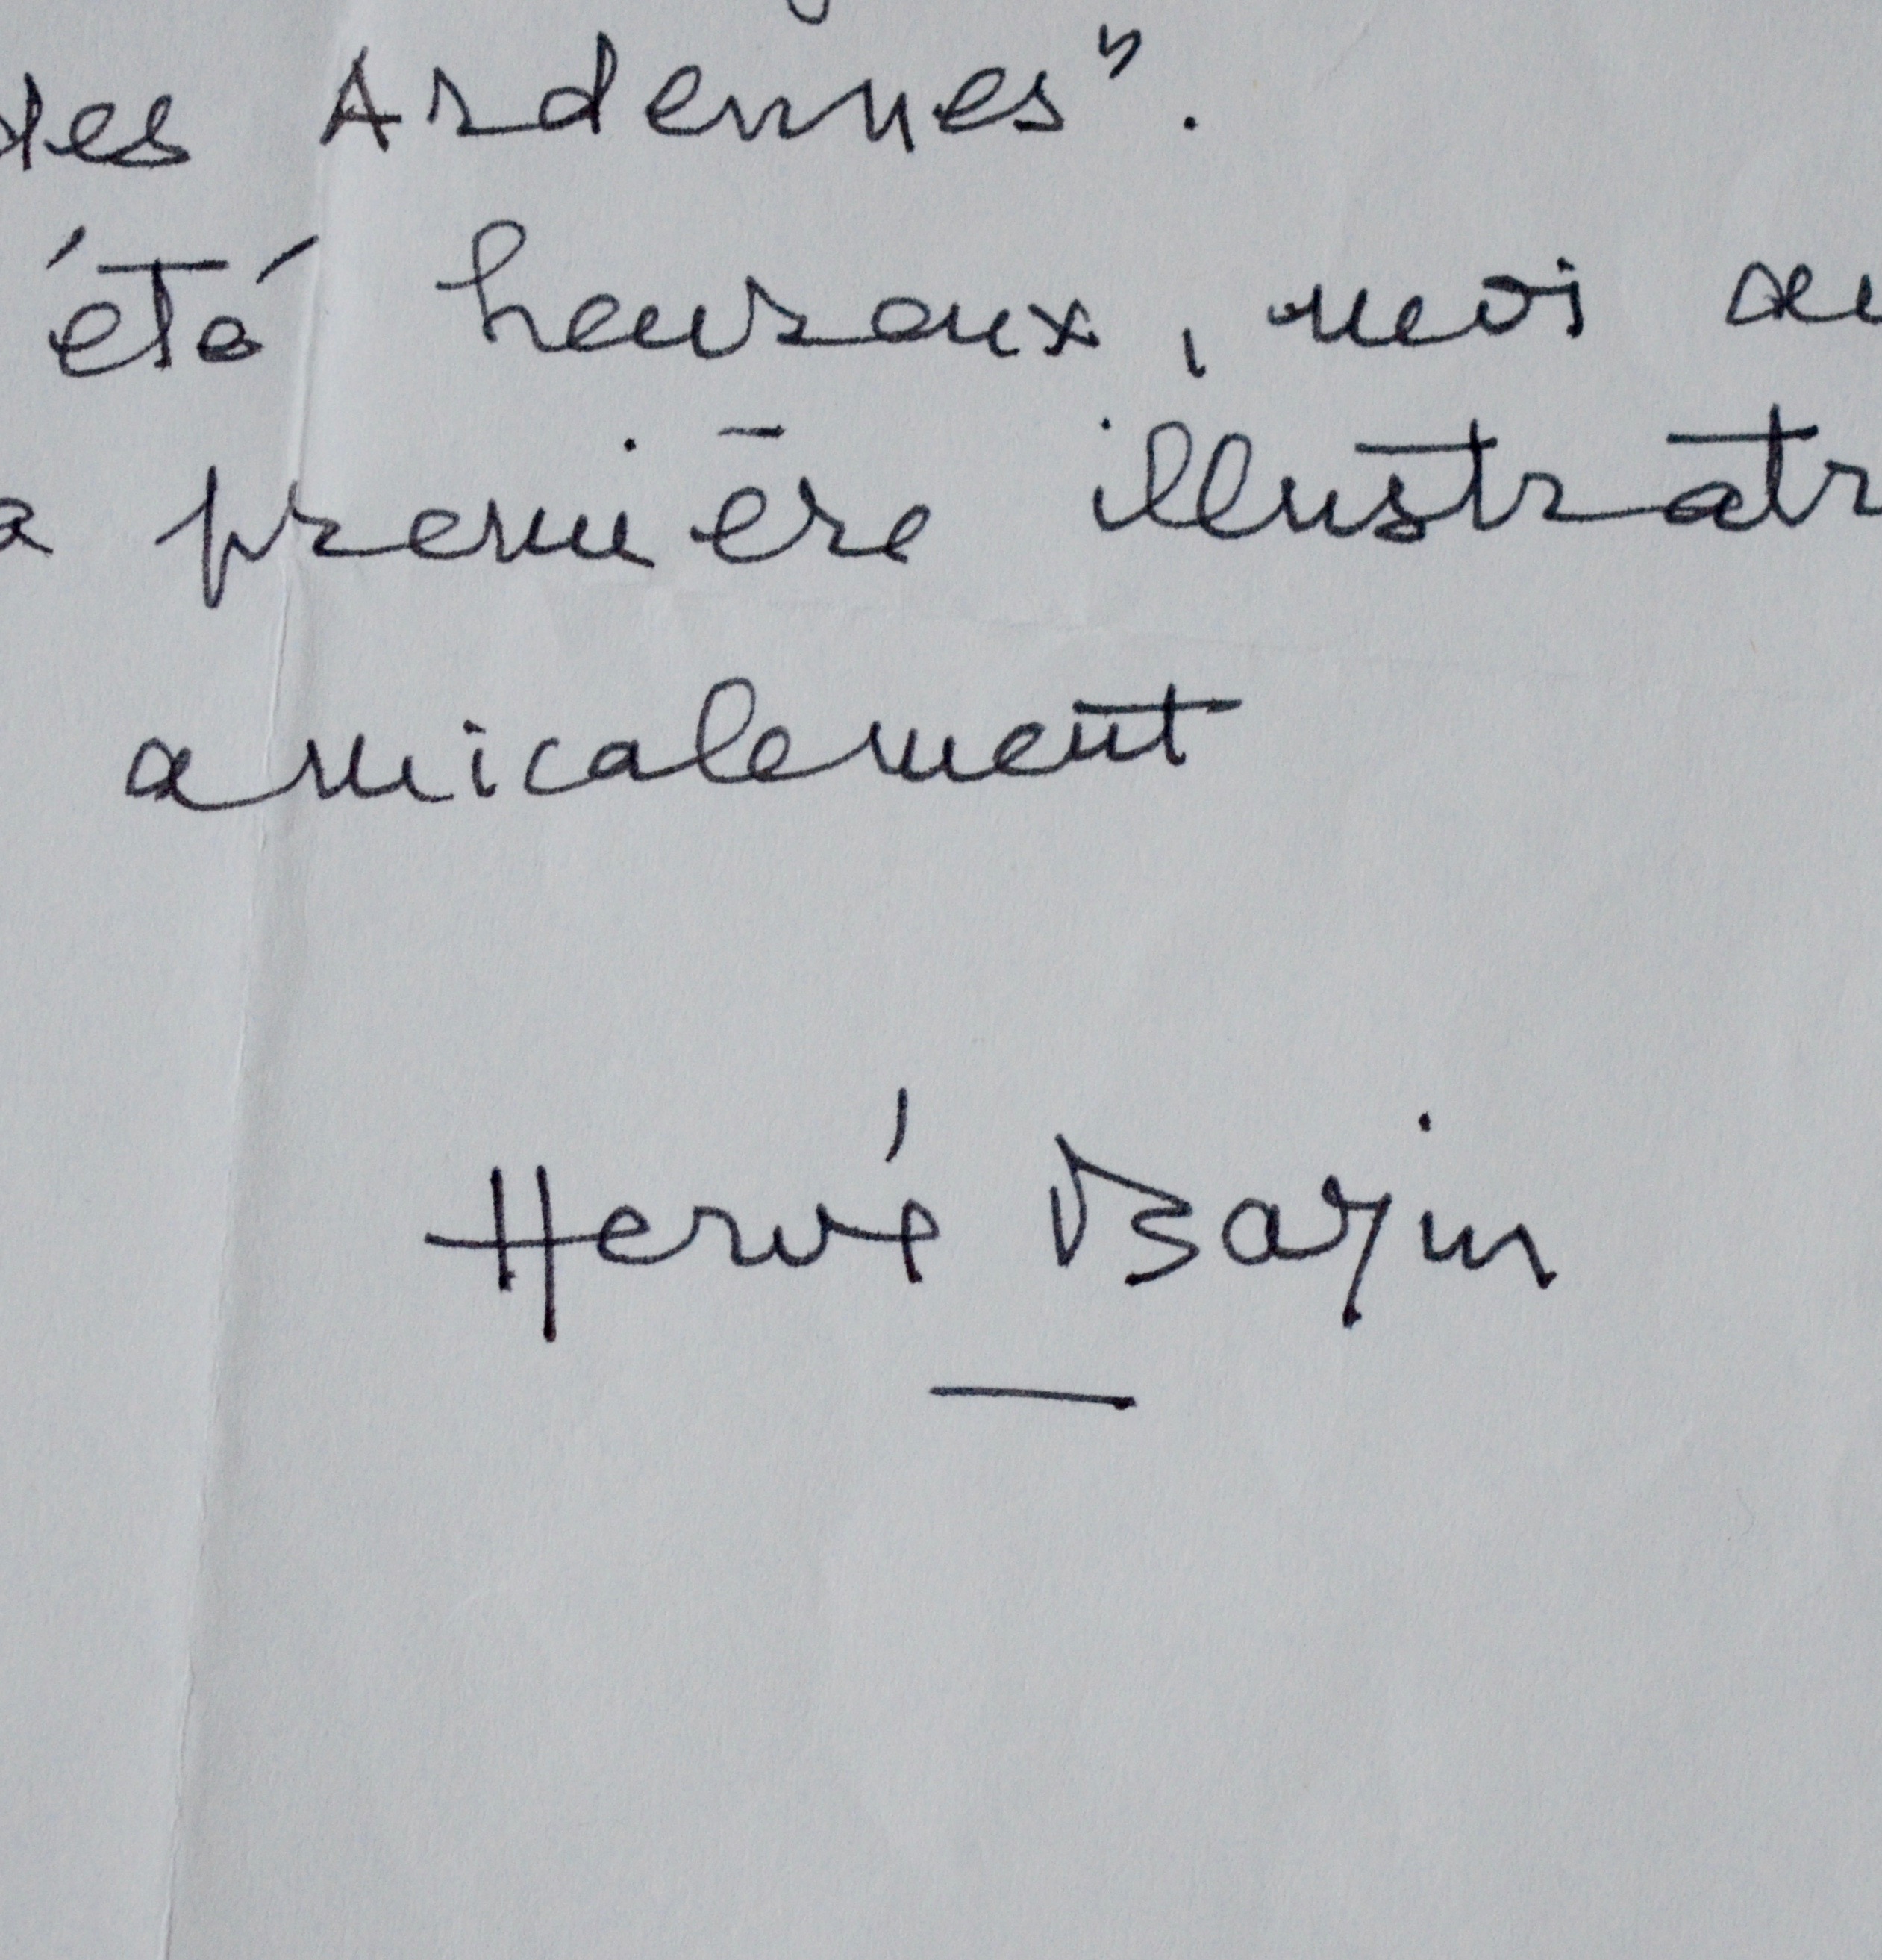 des Ardennes".
été heureux, moi au
a première illustratr
amicalement
Hervé Bazin